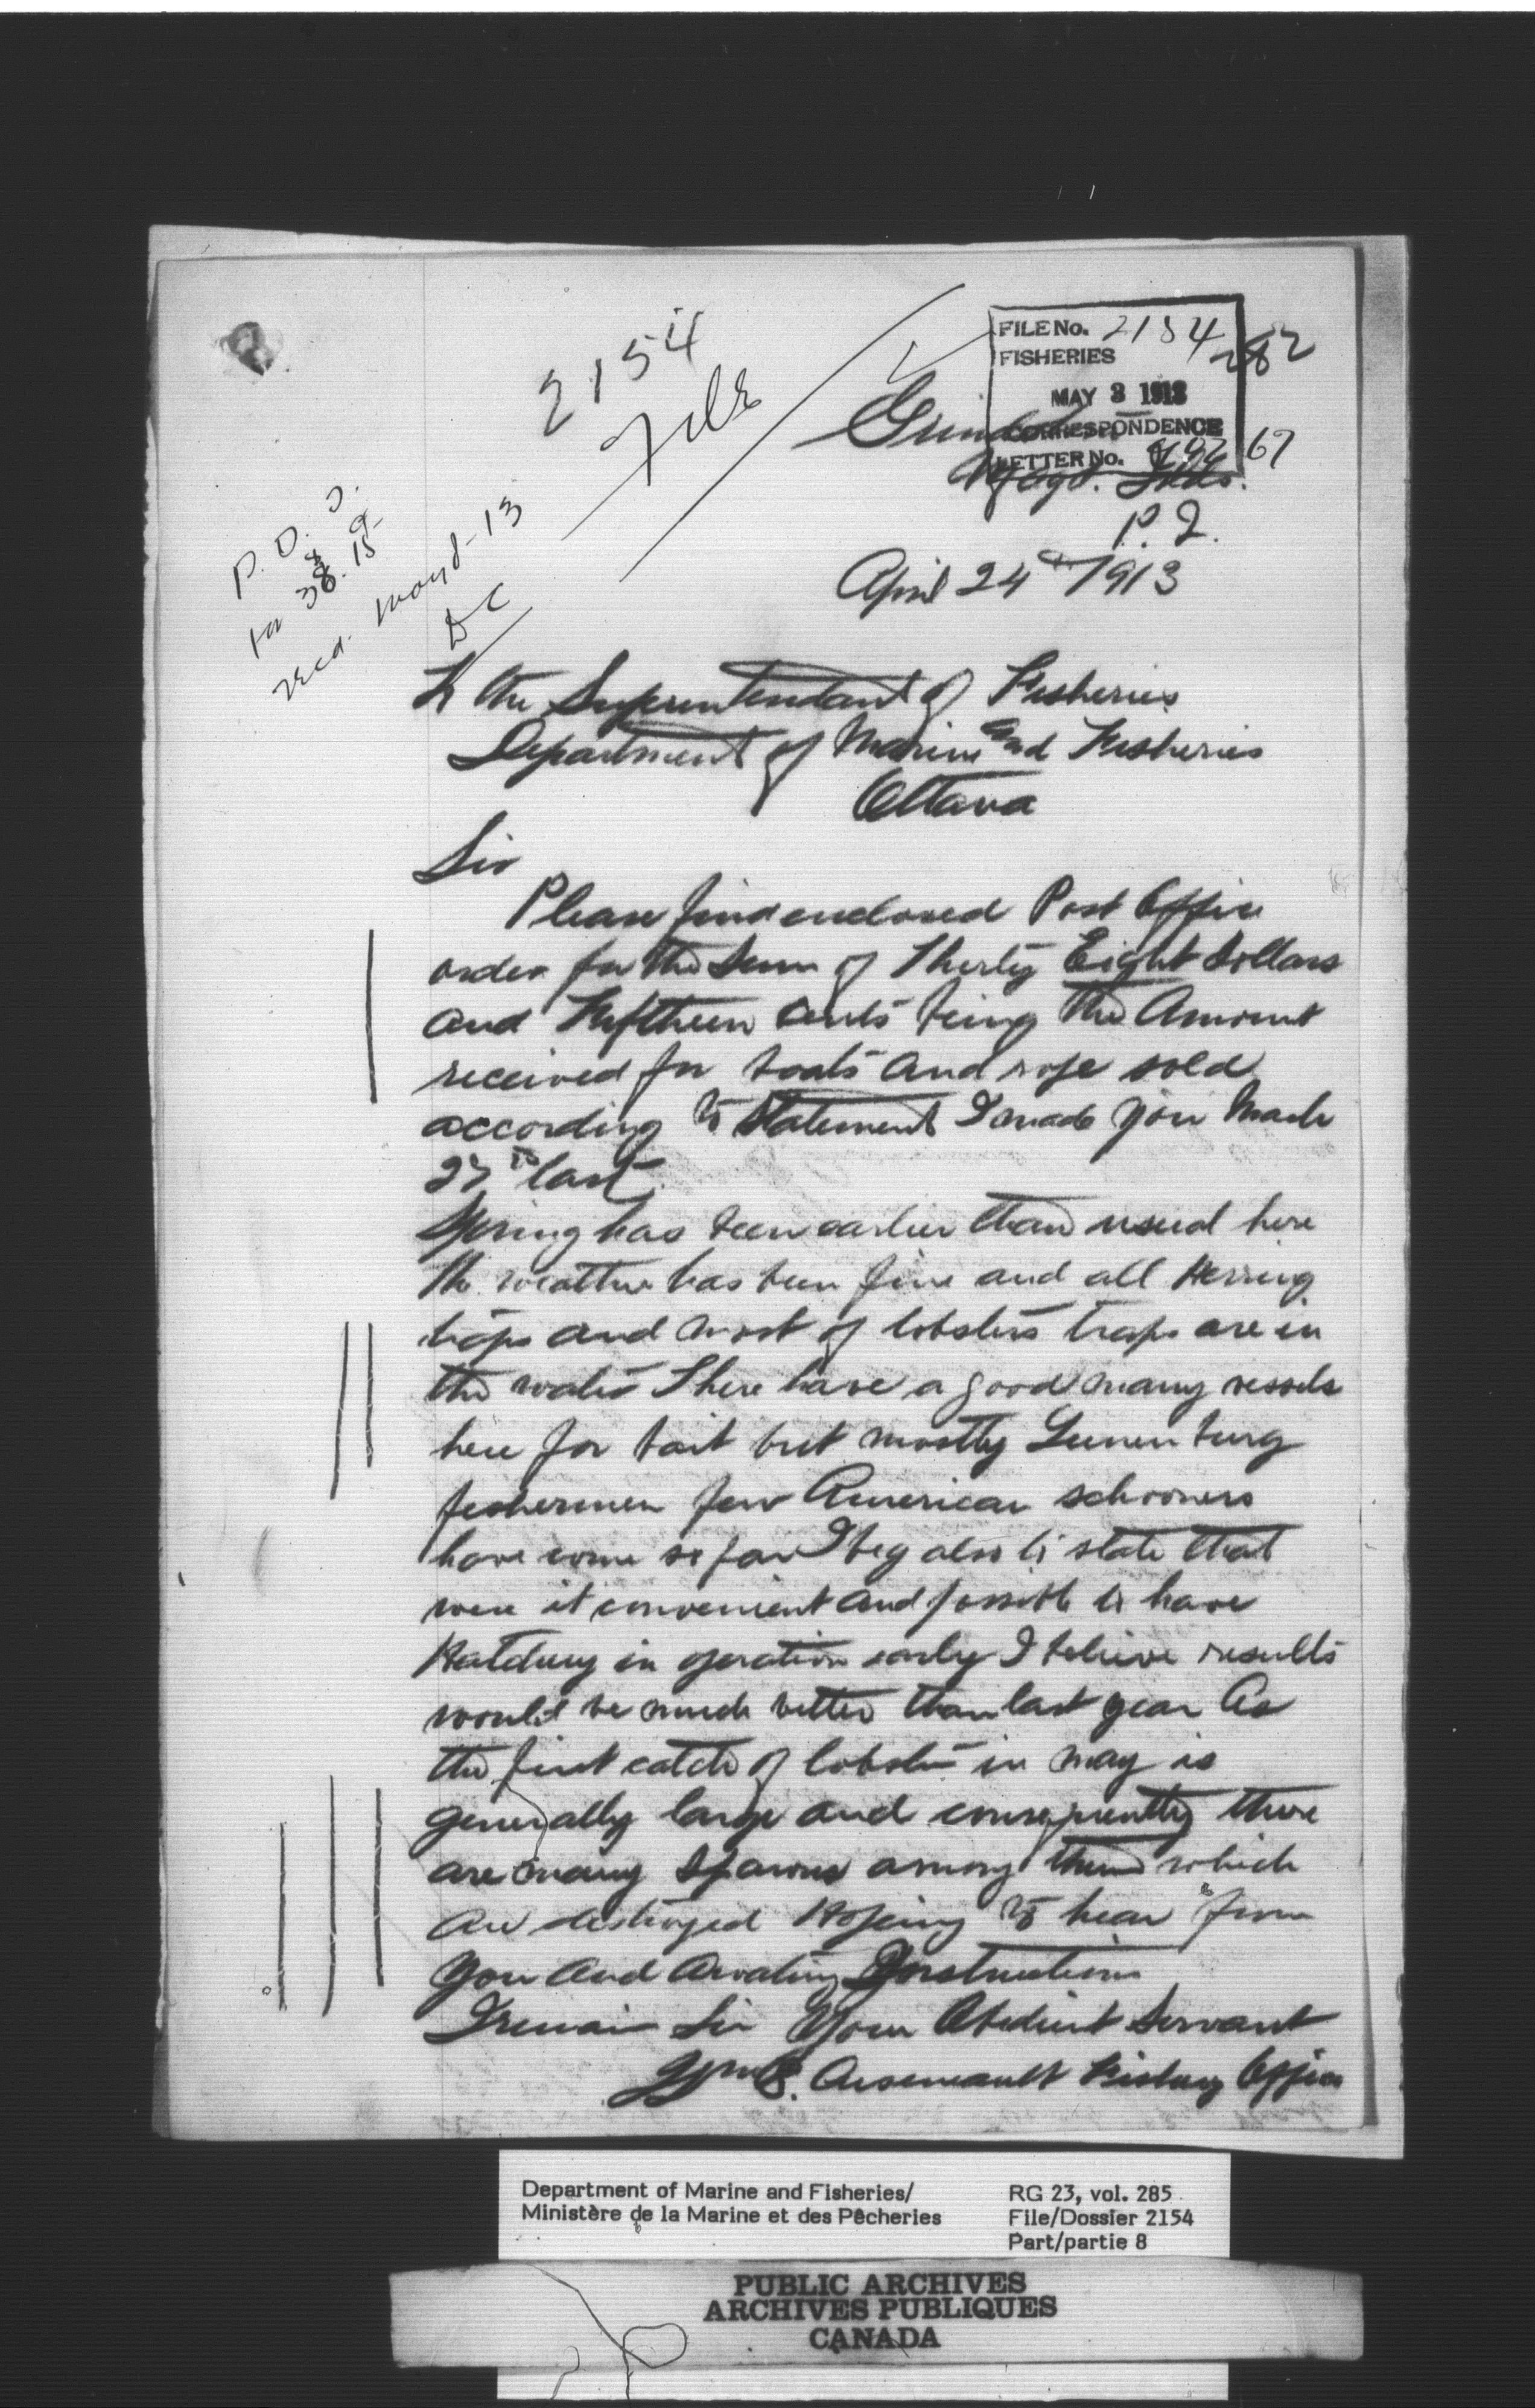 2154
File
FILE No. 2154
282
FISHERIES
MAY 3 1913
CORRESPONDENCE
LETTER No. 67
Grind
Magd. Islds.
P. Q.
April 24th 1913
P. O. O.
for 38.15
recd. May 1-13
To the Superentendant of Fisheries
Department of Marine and Fisheries
Ottawa
Sir
Please find enclosed Post Office
order for the Sum of Therty Eight dollars
and Fiftheen Cents being The Amount
received for boats and rope sold
according to Statement I made you March
27th last.
Spring has been earlier than usual here
The weather has been fine and all Herring
traps and most of lobsters traps are in
the water There have a good many vessels
here for bait but mostly Lunenburg
feshermen few American schooners
have come so far I beg also to state that
were it convenient and possible to have
Hatchery in operation early I believe results
would be much better than last year As
the first catch of lobster in May is
generally large and consequently there
are many Spawns among them which
are destroyed Hoping to hear from
you and Awaiting Instructions
I remain Sir Your Obedient Servant
Arseneault Fishery Officer
Department of Marine and Fisheries/
Ministère de la Marine et des Pêcheries
RG 23, vol. 285
File/Dossier 2154
Part/partie 8
PUBLIC ARCHIVES
ARCHIVES PUBLIQUES
CANADA